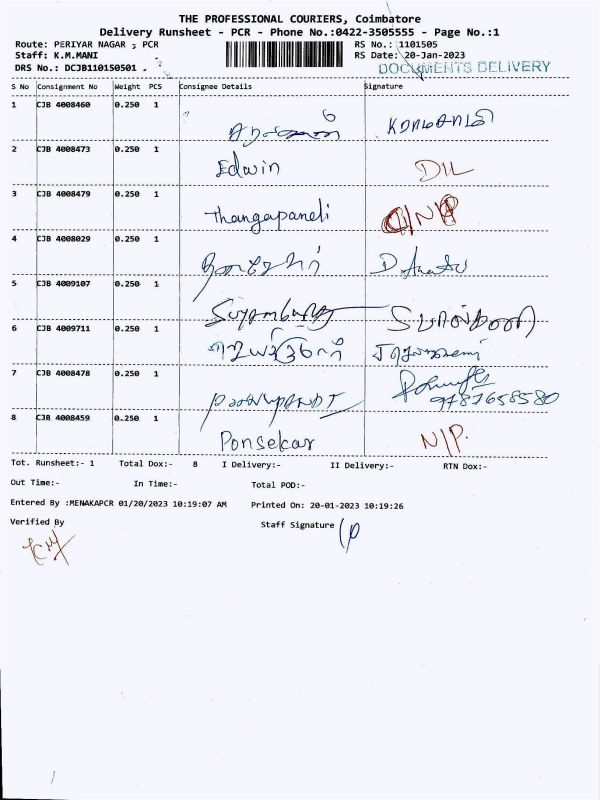 THE PROFESSIONAL COURIERS, Coimbatore
Delivery Runsheet - PCR - Phone No.:0422-3505555 - Page No.:1
Route: PERIYAR NAGAR , PCR
RS No.: 1101505
Staff: K.M.MANI
RS Date: 20-Jan-2023
DRS No.: DCJB110150501 .
DOCUMENTS DELIVERY
S No Consignment No Weight PCS Consignee Details Signature
1 CJB 4008460 0.250 1
2 CJB 4008473 0.250 1 Edwin D/L
3 CJB 4008479 0.250 1 Thangapandi
4 CJB 4008029 0.250 1
5 CJB 4009107 0.250 1
6 CJB 4009711 0.250 1
7 CJB 4008478 0.250 1 9787658580
8 CJB 4008459 0.250 1 Ponsekar N/P.
Tot. Runsheet:- 1 Total Dox:- 8 I Delivery:- II Delivery:- RTN Dox:-
Out Time:- In Time:- Total POD:-
Entered By :MENAKAPCR 01/20/2023 10:19:07 AM Printed On: 20-01-2023 10:19:26
Verified By Staff Signature